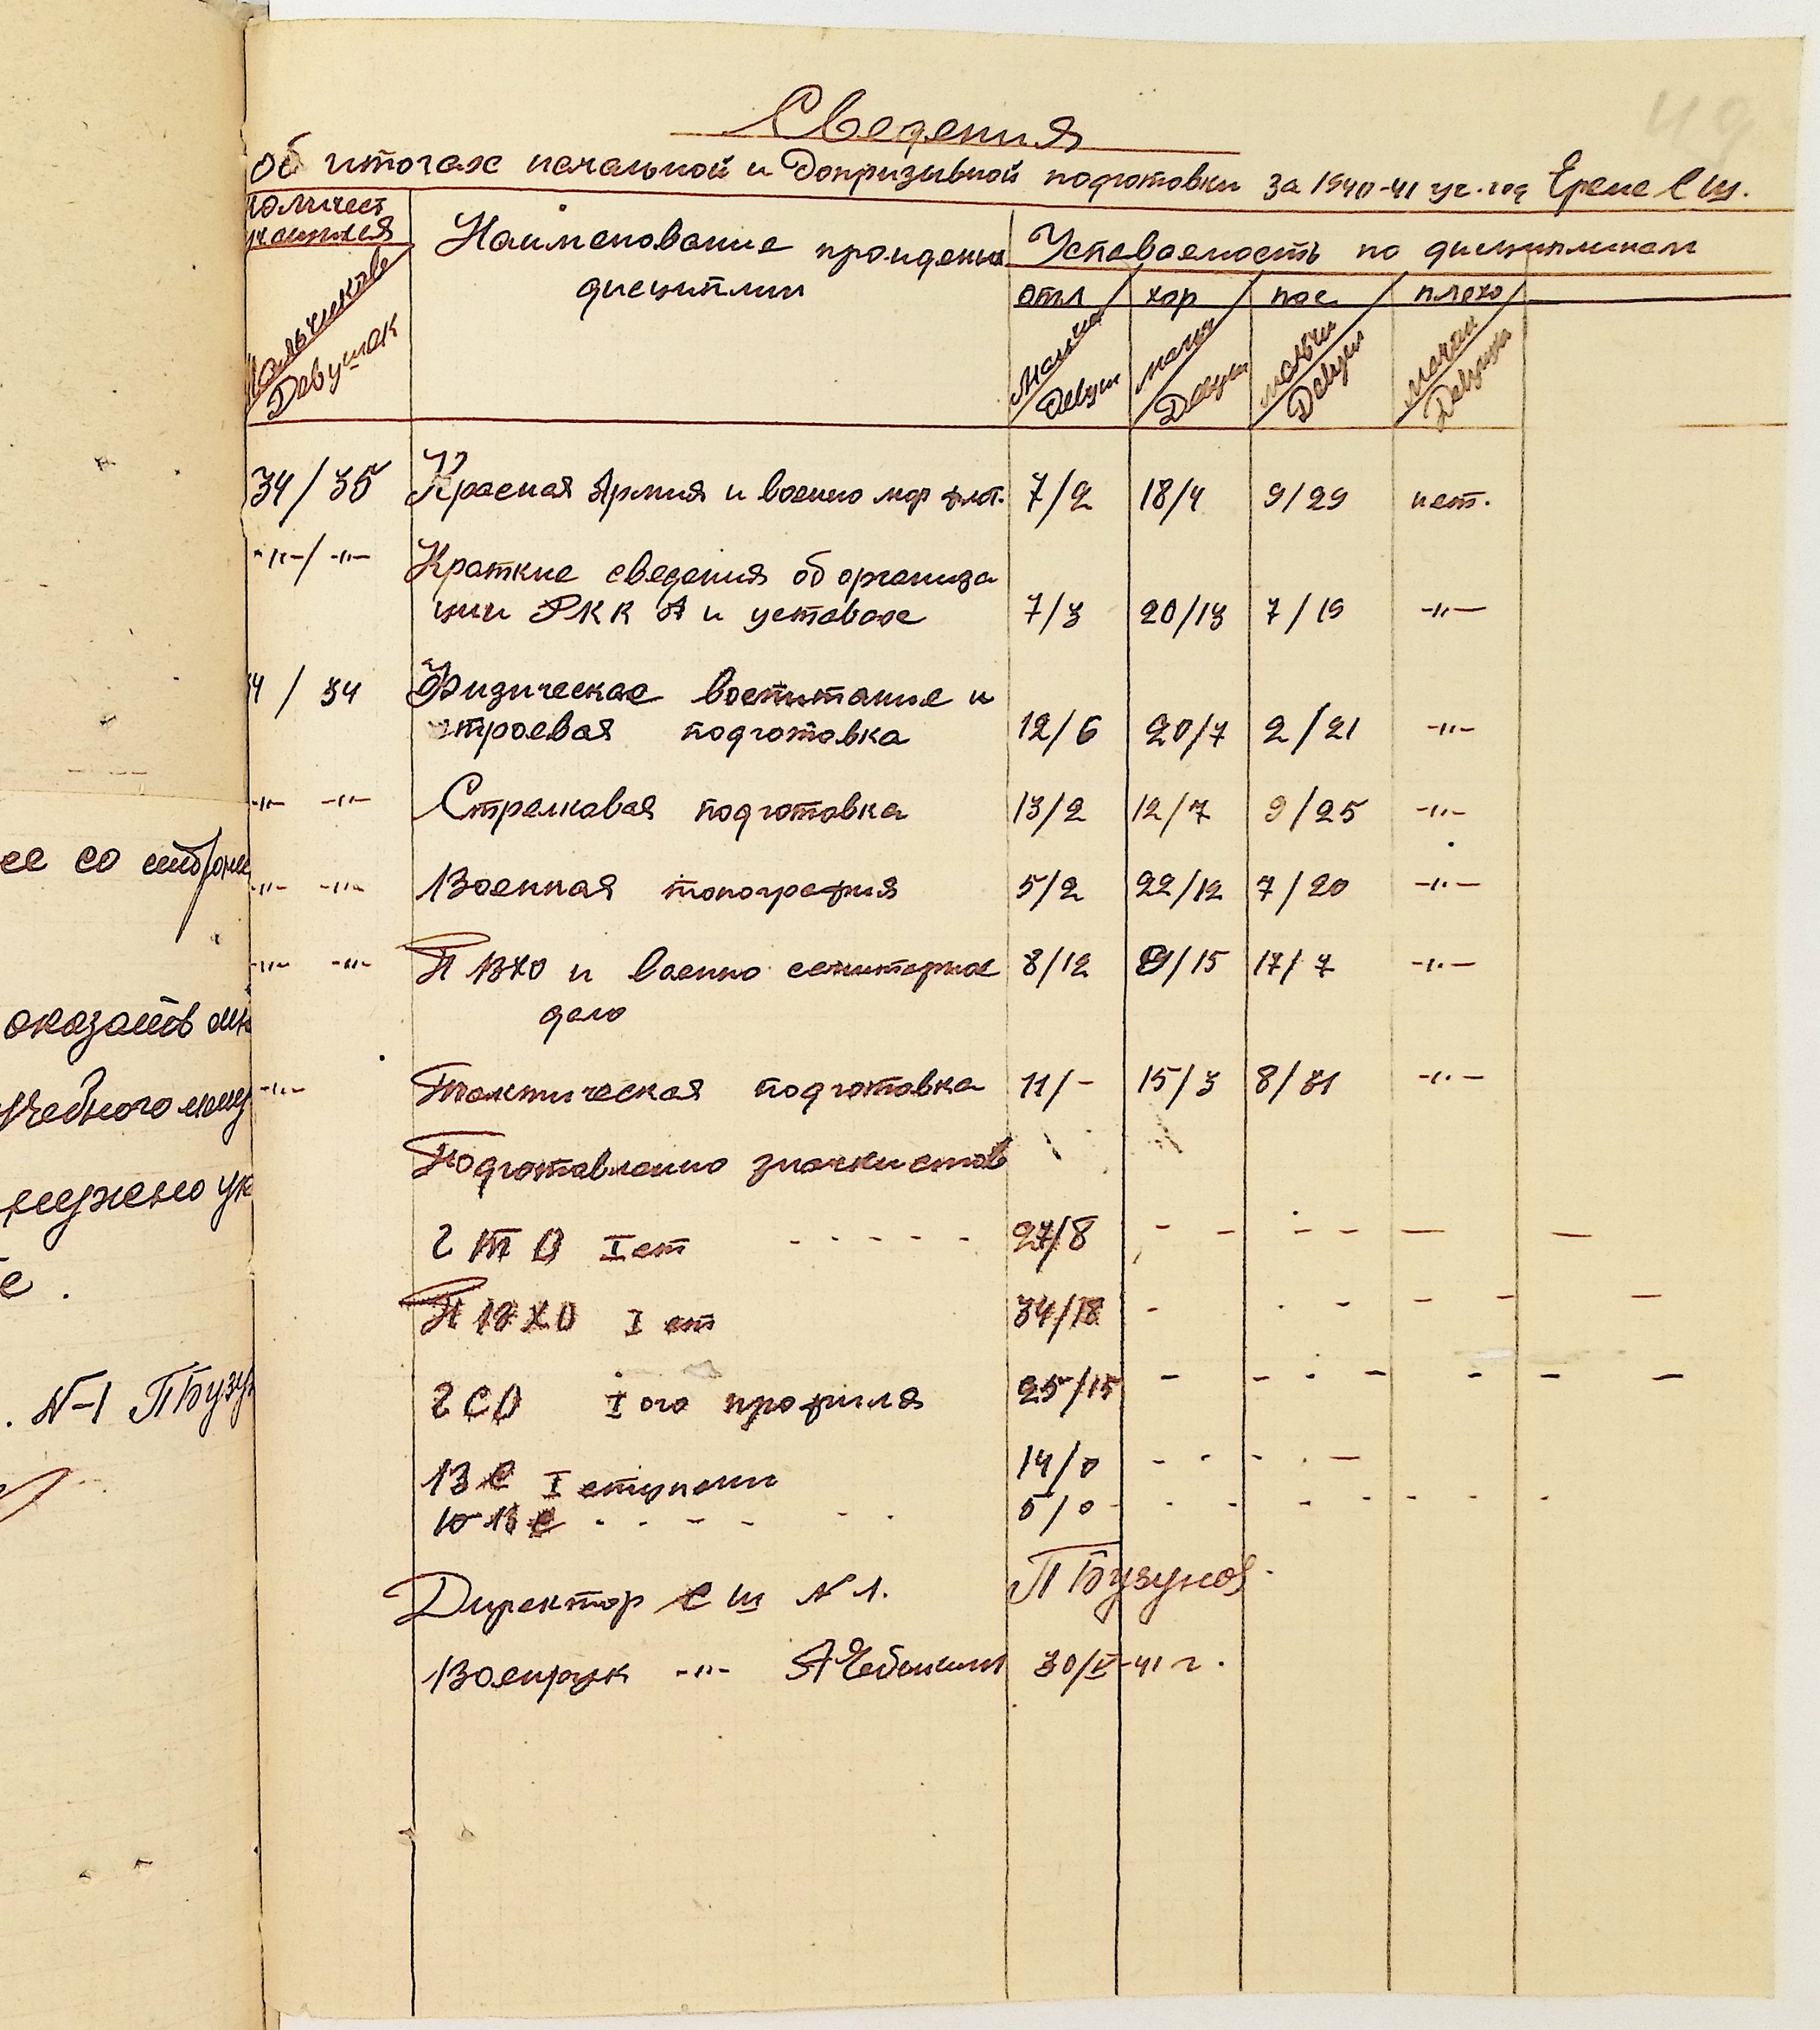 49
Сведения
об итогах начальной и Допризывной подготовки за 1940-41 уч. год Ерене С Ш.
Количест
учащихся
Наименование пройдены
дисциплин
Успеваемость по дисциплинам
Мальчиков
Девушек
отл хор пос плохо
Мальчи Девуш мальч Девуш мальчи Девуш Девушки
34/35 Красная Армия и военно мор флот. 7/2 18/4 9/29 нет.
-"-/-"- Краткие сведения об организа
ции РККА и уставах 7/3 20/13 7/19 -"-
34/34 Физическае воспитание и
строевая подготовка 12/6 20/7 2/21 -"-
-"- -"- Стрелкавая подготовка 13/2 12/7 9/25 -"-
-"- -"- Военная топография 5/2 22/12 7/20 -"-
-"- -"- П ВХО и военно санитарное 8/12 9/15 17/7 -"-
дело
-"- Тактическая подготовка 11/- 15/3 8/31 -"-
Подготавленно значкистов
Г Т О I ст - - - - - 27/8 - - - - - -
П В Х О I ст 34/18 - - - - - -
Г С О I ого профиля 25/15 - - - - - - -
В С I ступени 14/0 - - - - -
Ю В С - - - - - - 5/0 - - - - - - - -
Директор С Ш № 1. П Бузунов.
Военрук -"- А Чебыкин 30/V-41 г.
ее со сторон
оказать
учебного
нужено ук
е.
. №-1 П Бузу